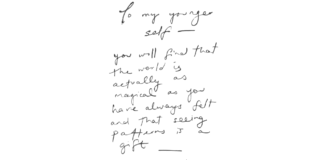 To my younger
self —
you will find that
the world is
actually as
magical as you
have always felt
and that seeing
patterns is a
gift —